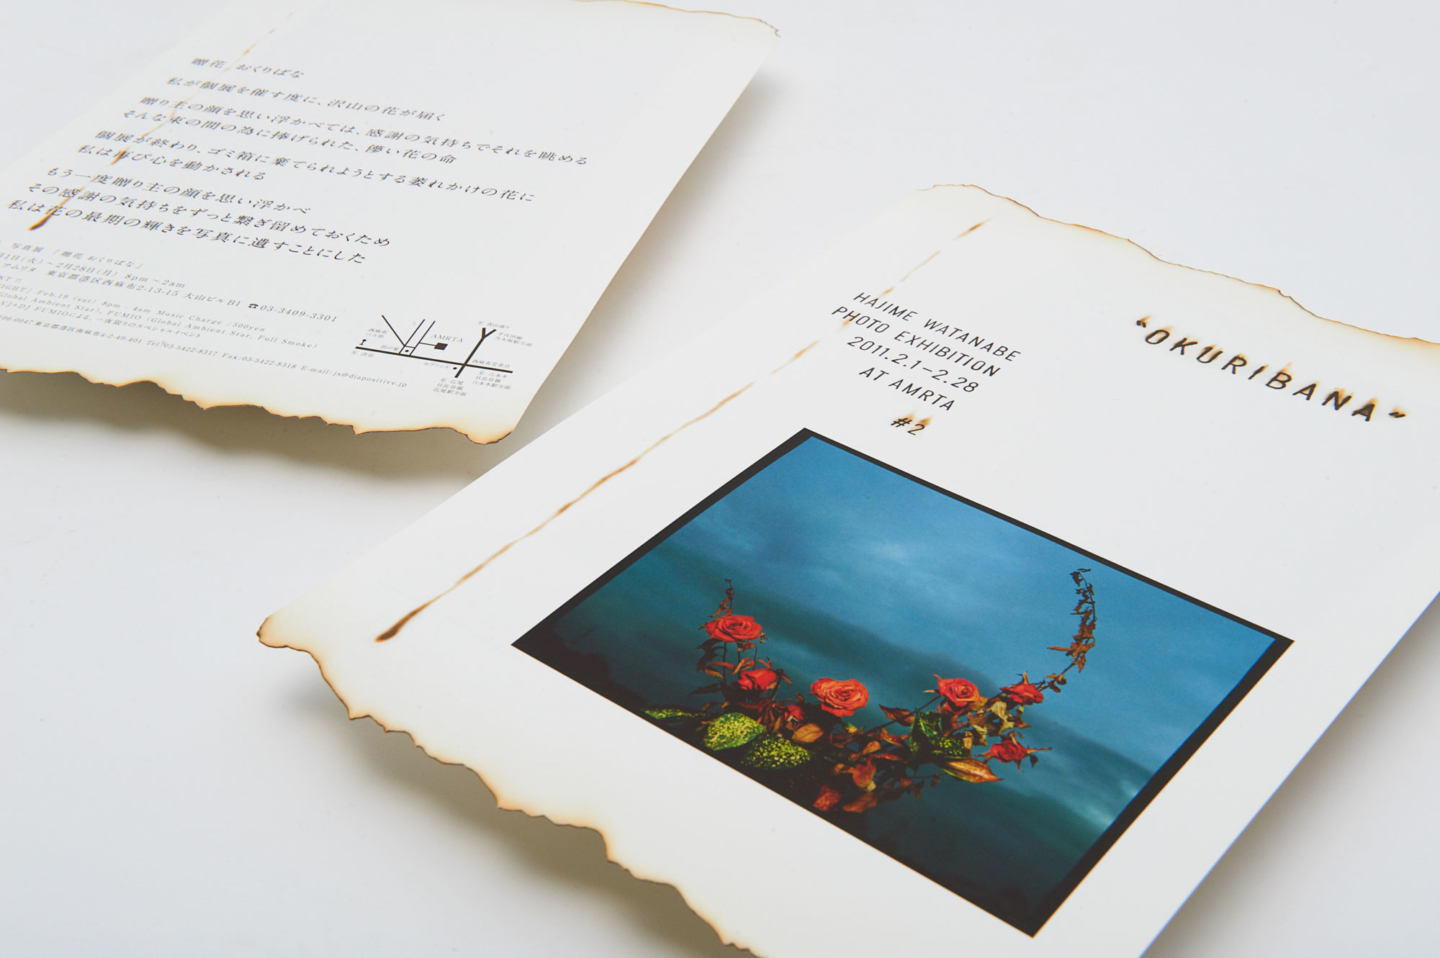 贈花 おくりばな
私が個展を催す度に、沢山の花が届く
贈り主の顔を思い浮かべては、感謝の気持ちでそれを眺める
そんな束の間の為に捧げられた、儚い花の命
個展が終わり、ゴミ箱に棄てられようとする萎れかけの花に
私は再び心を動かされる
もう一度贈り主の顔を思い浮かべ
その感謝の気持ちをずっと繋ぎ留めておくため
私は花の最期の輝きを写真に遺すことにした
写真展 「贈花 おくりばな」
1日(火)〜2月28日(月) 8pm〜2am
アムリタ 東京都港区西麻布2-13-15 大山ビルB1 ☎03-3409-3301
Feb.19 (sat) 8pm - 4am Music Charge / 500yen
Global Ambient Star), FUMIO (Global Ambient Star, Full Smoke)
VJ×DJ FUMIOによる、一夜限りのスペシャルイベント
東京都港区西麻布4-2-49-401 Tel:03-5422-8317 Fax:03-5422-8318 E-mail:js@diapositive.jp
AMRTA
HAJIME WATANABE
PHOTO EXHIBITION
2011.2.1–2.28
AT AMRTA
#2
“OKURIBANA”